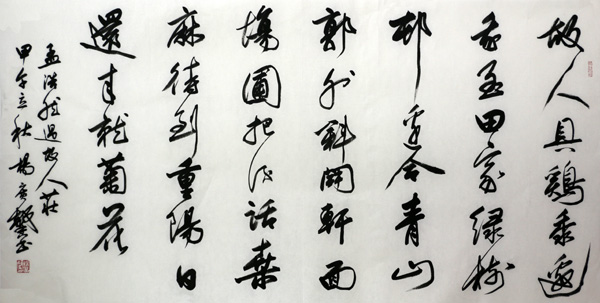 故人具鷄黍邀
我至田家綠樹
邨邊合青山
郭外斜開軒面
場圃把酒話桑
麻待到重陽日
還来就菊花
孟浩然過故人莊
甲午立秋楊